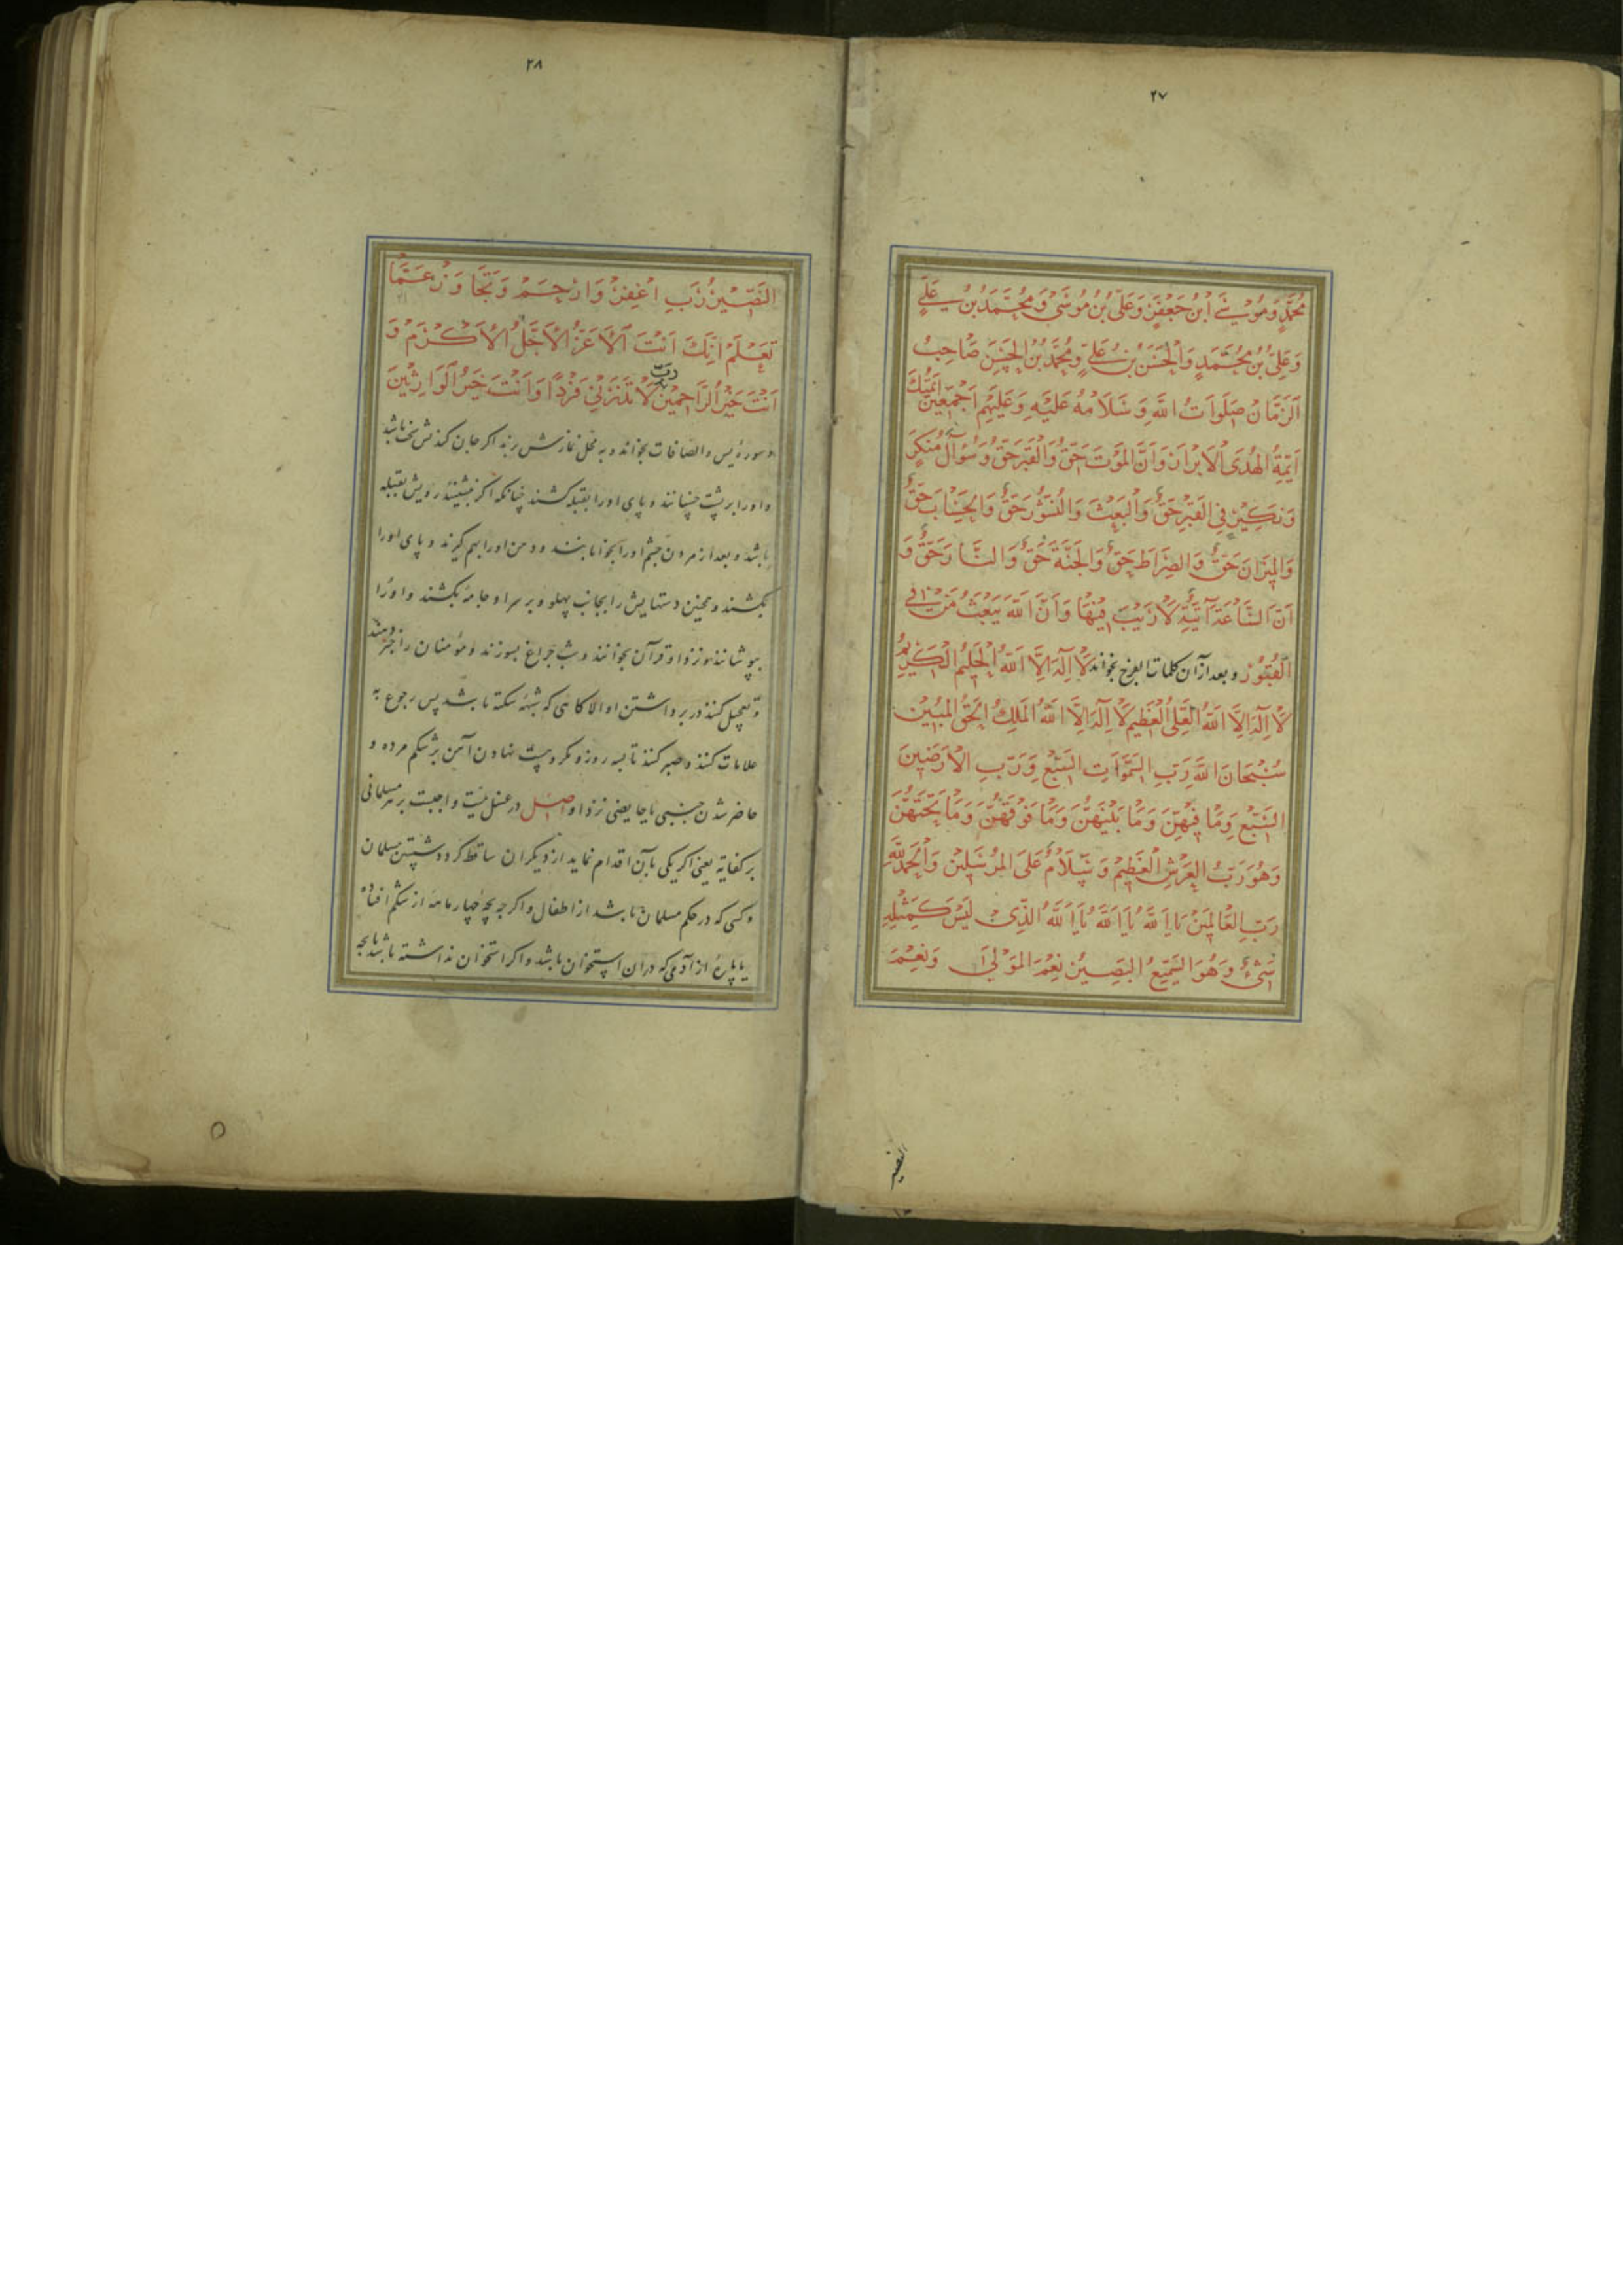 ۲۷
مُحَمَّدٍ وَمُوْسٰى ابْنَ جَعْفَرٍ وَعَلِىَّ بْنُ مُوسٰى وَمُحَمَّدَ بْنَ عَلِيٍّ
وَعَلِىَّ بْنُ مُحَمَّدٍ وَالْحَسَنَ بْنَ عَلِيٍّ وَمُحَمَّدَ بْنَ الْحَسَنِ صَاحِبُ
الزَّمَانِ صَلَوَاتُ اللَّهِ وَسَلَامُهُ عَلَيْهِ وَعَلَيْهِمْ اَجْمَعِيْنَ اَئِمَّتُكَ
اَئِمَّةِ الهُدَى الْاَبْرَارَ وَاَنَّ المَوْتَ حَقٌّ وَالْقَبْرَ حَقٌّ وَسُؤَالَ مُنْكَرٍ
وَنَكِيْرٍ فِى القَبْرِ حَقٌّ وَالْبَعْثَ وَالنُّشُوْرَ حَقٌّ وَالْحِسَابَ حَقٌّ
وَالْمِيْزَانَ حَقٌّ وَالصِّرَاطَ حَقٌّ وَالْجَنَّةَ حَقٌّ وَالنَّارَ حَقٌّ وَ
اَنَّ السَّاعَةَ آتِيَةٌ لَا رَيْبَ فِيْهَا وَاَنَّ اللّهَ يَبْعَثُ مَنْ فِى
الْقُبُوْرِ وبعد از آن کلمات الفرج بخواند لَا اِلٰهَ اِلَّا اللّهُ الْحَلِيْمُ الْكَرِيْمُ
لَا اِلٰهَ اِلَّا اللّهُ الْعَلِىُّ الْعَظِيْمُ لَا اِلٰهَ اِلَّا اللّهُ المَلِكُ الْحَقُّ المُبِيْنُ
سُبْحَانَ اللّهِ رَبِّ السَّمٰوَاتِ السَّبْعِ وَرَبِّ الْاَرَضِيْنَ
السَّبْعِ وَمَا فِيْهِنَّ وَمَا بَيْنَهُنَّ وَمَا فَوْقَهُنَّ وَمَا تَحْتَهُنَّ
وَهُوَ رَبُّ العَرْشِ الْعَظِيْمِ وَسَلَامٌ عَلَى المُرْسَلِيْنَ وَالْحَمْدُ لِلّهِ
رَبِّ العَالَمِيْنَ يَا اَللّهُ يَا اَللّهُ يَا اَللّهُ الَّذِىْ لَيْسَ كَمِثْلِهِ
شَىْءٌ وَهُوَ السَّمِيْعُ البَصِيْرُ نِعْمَ المَوْلٰى وَنِعْمَ
النصیر
۲۸
النَّصِيْرُ رَبِّ اغْفِرْ وَارْحَمْ وَتَجَاوَزْ عَمَّا
تَعْلَمْ اِنَّكَ اَنْتَ الْاَعَزُّ الْاَجَلُّ الْاَكْرَمُ وَ
اَنْتَ خَيْرُ الرَّاحِمِيْنَ رَبِّ لَا تَذَرْنِىْ فَرْدًا وَاَنْتَ خَيْرُ الْوَارِثِيْنَ
و سوره یس والصافات بخواند و به محل نمازش برند اکر جان کندنش سخت باشد
و او را بر پشت خسبانند و پای او را بقبله کشند چنانکه اکر بنشیند رویش بقبله
باشد و بعد از مردن چشم او را بخوابانند و دهن او را بهم کیرند و پای او را
بکشند و همچنین دستهایش را بجانب پهلو و بر سر او جامه بکشند و او را
بپوشانند و نزد او قرآن بخوانند و شب چراغ بسوزند و مؤمنان را خبر دهند
و تعجیل کنند در برداشتن او الا کاهی که شبهه سکته باشد پس رجوع به
علامات کنند و صبر کنند تا سه روز و مکروهست نهادن آهن بر شکم مرده و
حاضر شدن جنبی یا حایضی نزد او اصل در غسل میّت واجبست بر هر مسلمانی
بر کفایه یعنی اکر یکی بآن اقدام نماید از دیکران ساقط کردد شستن مسلمان
و کسی که در حکم مسلمان باشد از اطفال و اکر چه بچه چهار ماهه از شکم افتاده
یا پارهٔ از آدمی که در آن استخوان باشد و اکر استخوان نداشته باشد